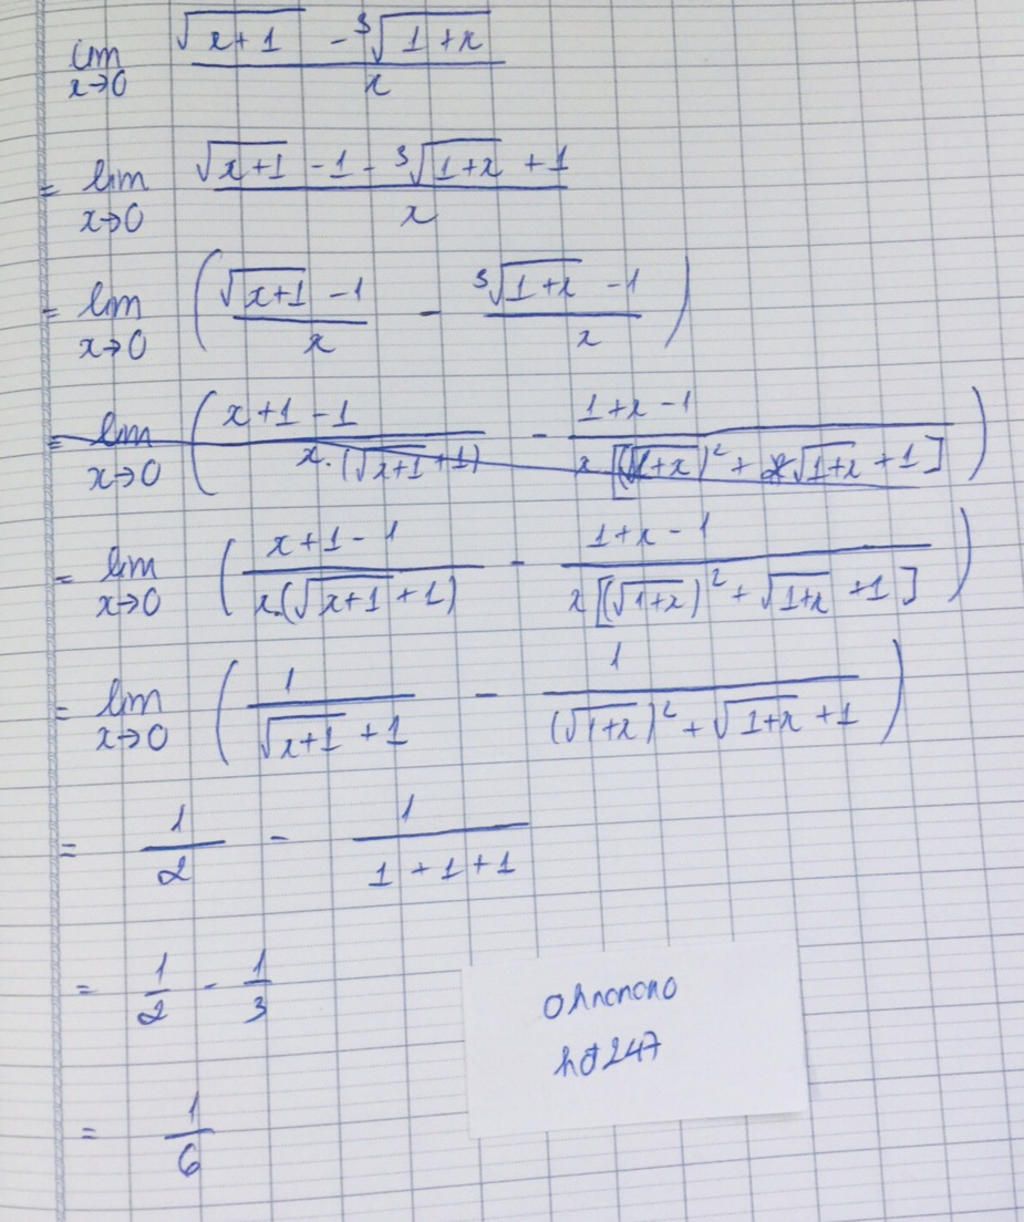 lim x→0 (√(x+1) - ³√(1+x)) / x
= lim x→0 (√(x+1) - 1 - ³√(1+x) + 1) / x
= lim x→0 ( (√(x+1) - 1) / x - (³√(1+x) - 1) / x )
= lim x→0 ( (x+1-1) / (x.(√(x+1)+1)) - (1+x-1) / (x[(√(1+x))² + √(1+x) + 1]) )
= lim x→0 ( (x+1-1) / (x.(√(x+1)+1)) - (1+x-1) / (x[(√(1+x))² + √(1+x) + 1]) )
= lim x→0 ( 1 / (√(x+1)+1) - 1 / ((√(1+x))² + √(1+x) + 1) )
= 1/2 - 1/(1+1+1)
= 1/2 - 1/3
= 1/6
ohnonono
hđ247